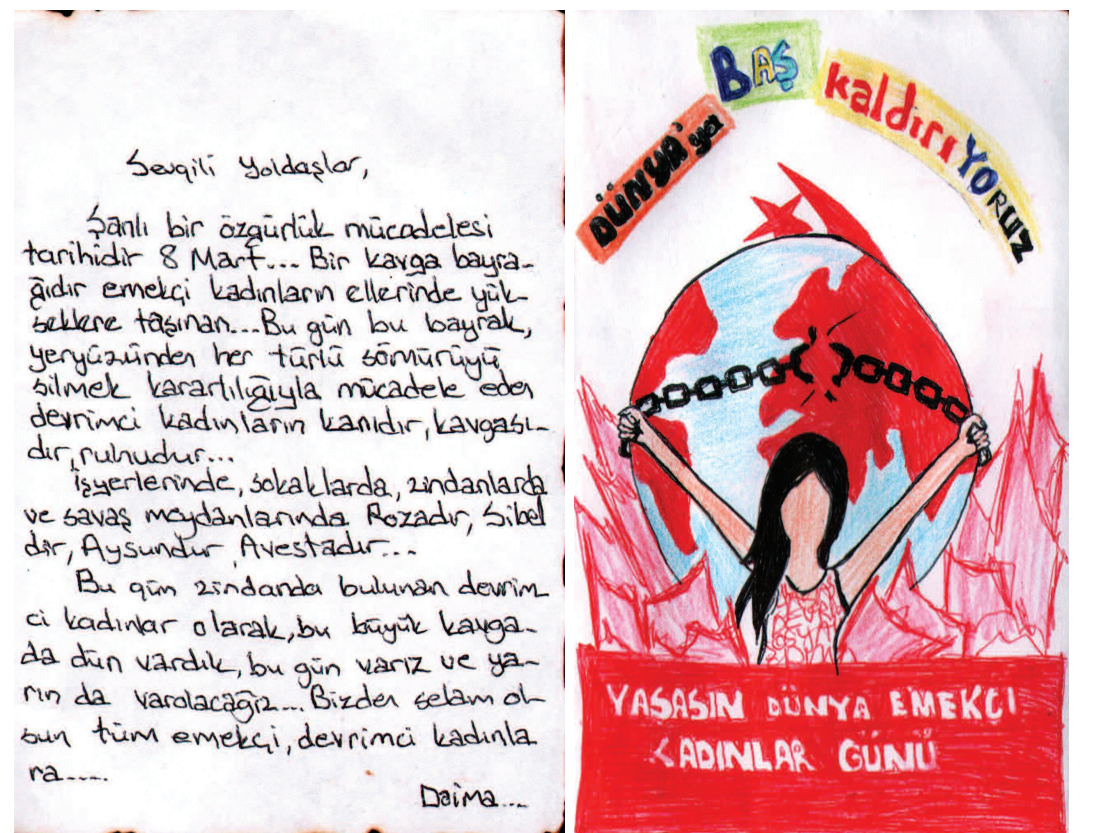 Sevgili Yoldaşlar,
Şanlı bir özgürlük mücadelesi
tarihidir 8 Mart.... Bir kavga bayra-
ğıdır emekçi kadınların ellerinde yük-
seklere taşınan...Bu gün bu bayrak,
yeryüzünden her türlü sömürüyü
silmek kararlılığıyla mücadele eden
devrimci kadınların kanıdır, kavgası-
dır, ruhudur...
İşyerlerinde, sokaklarda, zindanlarda
ve savaş meydanlarında Rozadır, Sibel
dir, Aysundur, Avestadır...
Bu gün zindanda bulunan devrim
ci kadınlar olarak, bu büyük kavga-
da dün vardık, bu gün varız ve ya-
rın da varolacağız.... Bizden selam ol-
sun tüm emekçi, devrimci kadınla
ra.....
Daima...
DÜNYA'ya BAŞ kaldırıYORUZ
YAŞASIN DÜNYA EMEKÇİ
KADINLAR GÜNÜ